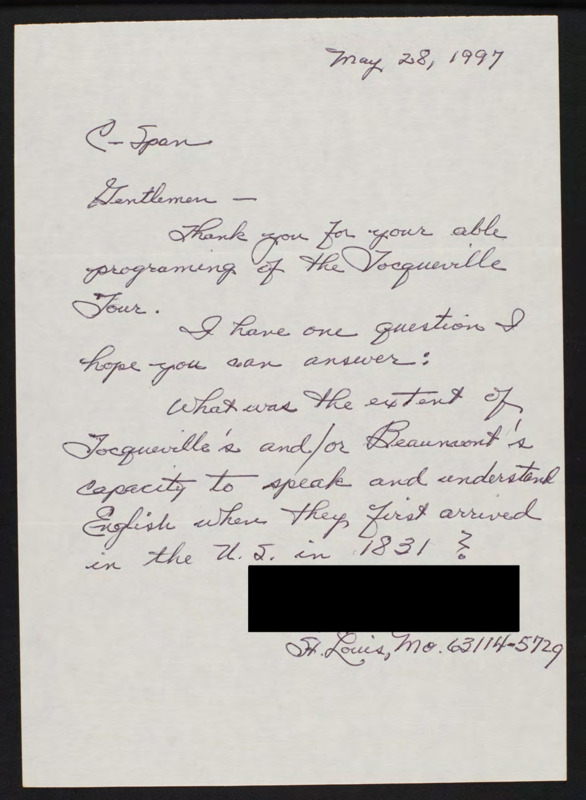 May 28, 1997
C-Span
Gentlemen —
Thank you for your able
programing of the Tocqueville
Tour.
I have one question I
hope you can answer:
What was the extent of
Tocqueville's and/or Beaumont's
capacity to speak and understand
English when they first arrived
in the U.S. in 1831?
St. Louis, Mo. 63114-5729